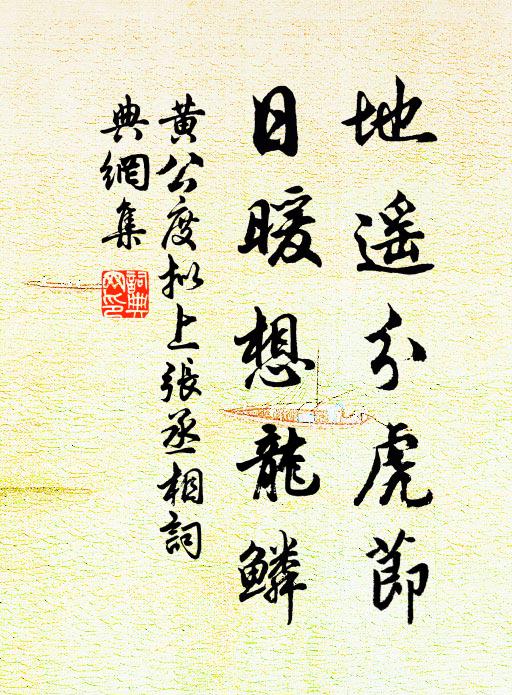 地遥分虎節
日暖想龍鱗
黄公度拟上張丞相詞
典網集
詞典
网印